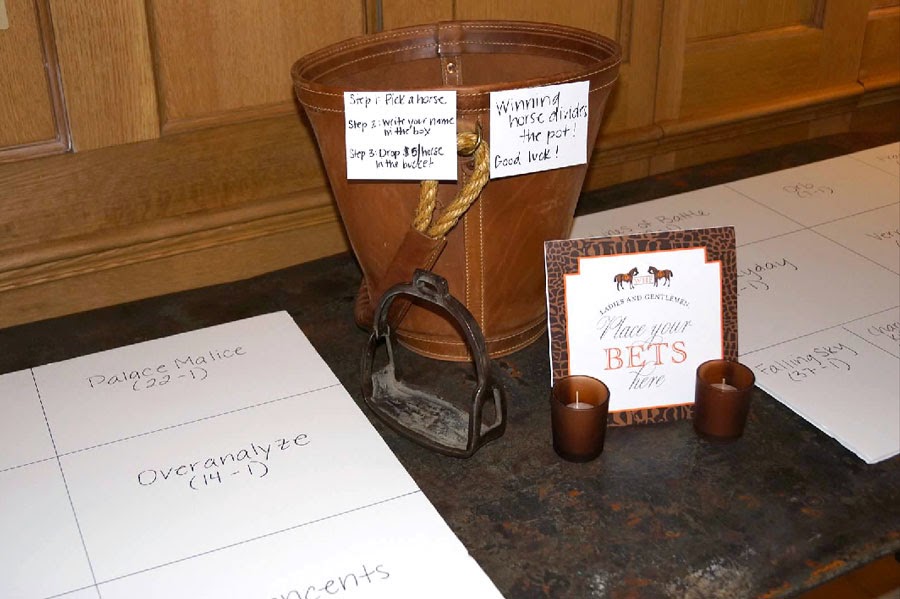 Step 1: Pick a horse
Step 2: Write your name
in the box
Step 3: Drop $5/horse
in the bucket
Winning
horse divides
the pot!
Good luck!
LADIES AND GENTLEMEN
Place your
BETS
here
Palace Malice
(22-1)
Overanalyze
(14-1)
Orb
of Battle
Falling Sky
(37-1)